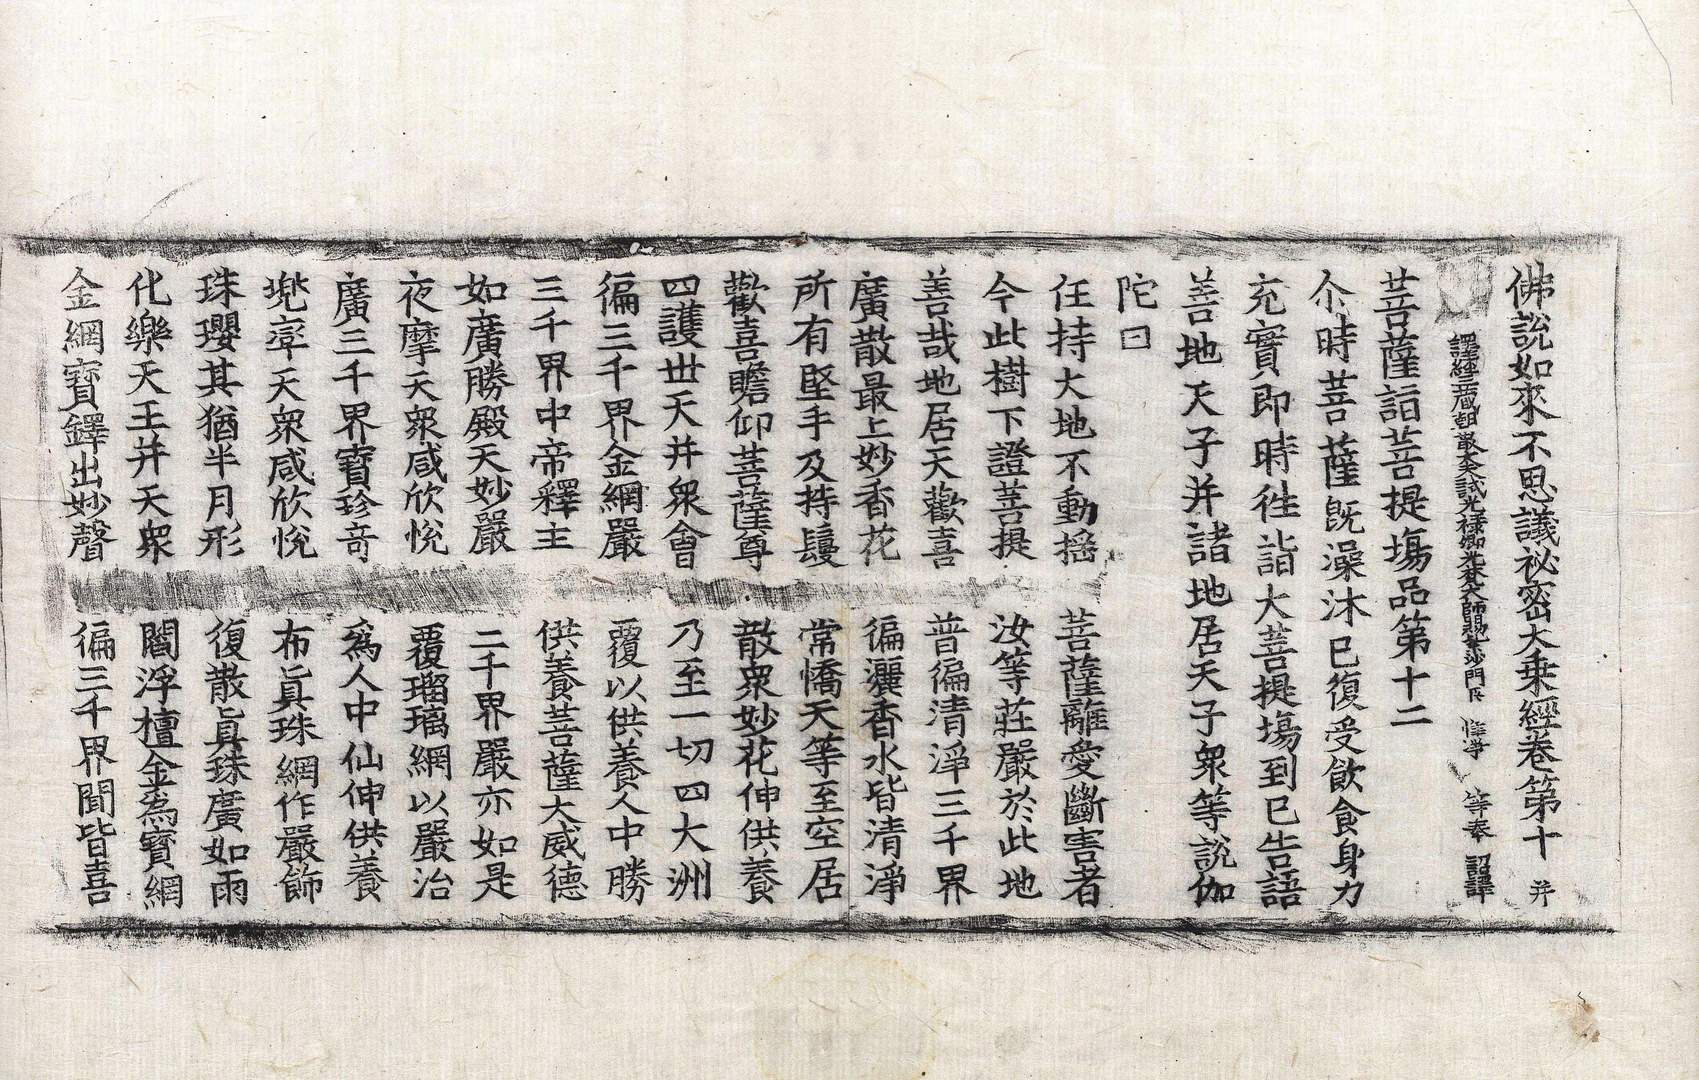 佛說如來不思議祕密大乘經卷第十 并
譯經三藏朝散大夫試光祿卿光梵大師賜紫沙門臣 惟淨 等奉 詔譯
菩薩詣菩提場品第十二
尒時菩薩旣澡沐已復受飮食身力
充實即時徃詣大菩提場到已告語
善地天子并諸地居天子衆等說伽
陀曰
任持大地不動搖 菩薩離愛斷害者
今此樹下證菩提 汝等莊嚴於此地
善哉地居天歡喜 普徧清淨三千界
廣散最上妙香花 徧灑香水皆清淨
所有堅手及持鬘 常憍天等至空居
歡喜瞻仰菩薩尊 散衆妙花伸供養
四護丗天并衆會 乃至一切四大洲
徧三千界金網嚴 覆以供養人中勝
三千界中帝釋主 供養菩薩大威德
如廣勝殿天妙嚴 二千界嚴亦如是
夜摩天衆咸欣悅 覆瑠璃網以嚴治
廣三千界寶珍奇 爲人中仙伸供養
兠率天衆咸欣悅 布眞珠網作嚴飾
珠瓔其猶半月形 復散眞珠廣如雨
化樂天王并天衆 閻浮檀金爲寶網
金網寶鐸出妙聲 徧三千界聞皆喜